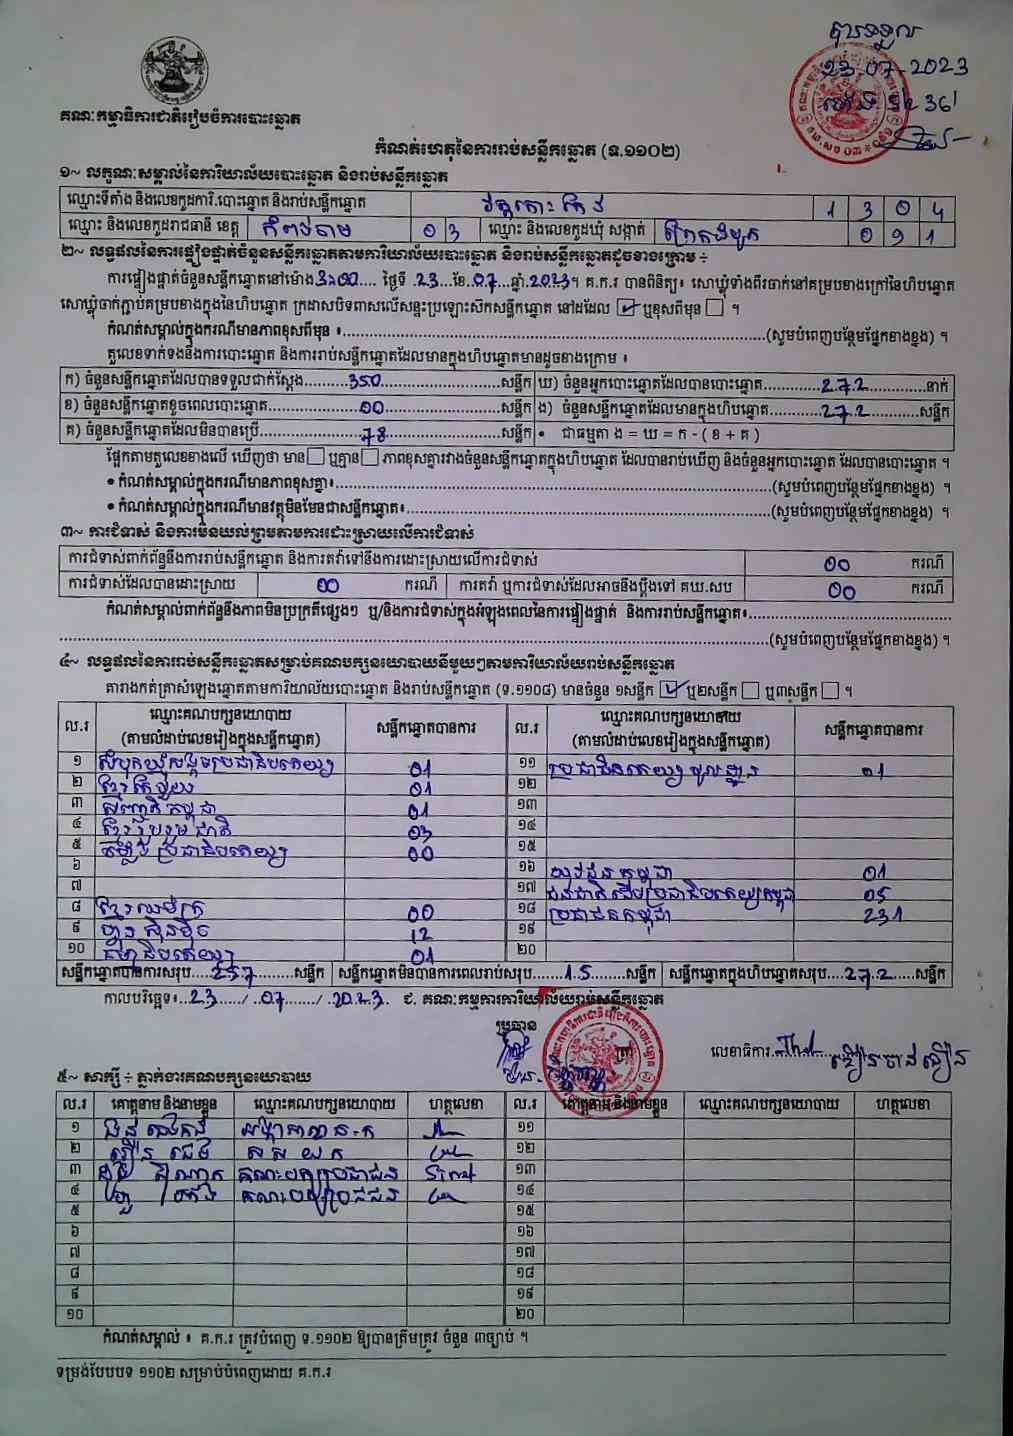 គណៈកម្មាធិការជាតិរៀបចំការបោះឆ្នោត
23-07-2023
កំណត់ហេតុនៃការរាប់សន្លឹកឆ្នោត (ទ.១១០២)
១~ លក្ខណៈសម្គាល់នៃការិយាល័យបោះឆ្នោត និងរាប់សន្លឹកឆ្នោត
ឈ្មោះទីតាំង និងលេខកូដការិ.បោះឆ្នោត និងរាប់សន្លឹកឆ្នោត 1 3 0 4
ឈ្មោះ និងលេខកូដរាជធានី ខេត្ត កំពង់ចាម 0 3 ឈ្មោះ និងលេខកូដឃុំ សង្កាត់ 0 9 1
២~ លទ្ធផលនៃការផ្ទៀងផ្ទាត់ចំនួនសន្លឹកឆ្នោតតាមការិយាល័យបោះឆ្នោត និងរាប់សន្លឹកឆ្នោតដូចខាងក្រោម ÷
ការផ្ទៀងផ្ទាត់ចំនួនសន្លឹកឆ្នោតនៅម៉ោង ថ្ងៃទី 23 ខែ 07 ឆ្នាំ 2023។ គ.ក.រ បានពិនិត្យ៖ សោឃ្លុំទាំងពីរចាក់នៅគម្របខាងក្រៅនៃហិបឆ្នោត
សោឃ្លុំចាក់ភ្ជាប់គម្របខាងក្នុងនៃហិបឆ្នោត ក្រដាសបិទពាសលើសន្ទះប្រឡោះស៊កសន្លឹកឆ្នោត នៅដដែល ☑ ឬខុសពីមុន ☐ ។
កំណត់សម្គាល់ក្នុងករណីមានភាពខុសពីមុន ៖ (សូមបំពេញបន្ថែមផ្នែកខាងខ្នង) ។
តួលេខទាក់ទងនឹងការបោះឆ្នោត និងការរាប់សន្លឹកឆ្នោតដែលមានក្នុងហិបឆ្នោតមានដូចខាងក្រោម ៖
ក) ចំនួនសន្លឹកឆ្នោតដែលបានទទួលជាក់ស្តែង 350 សន្លឹក ឃ) ចំនួនអ្នកបោះឆ្នោតដែលបានបោះឆ្នោត 272 នាក់
ខ) ចំនួនសន្លឹកឆ្នោតខូចពេលបោះឆ្នោត 00 សន្លឹក ង) ចំនួនសន្លឹកឆ្នោតដែលមានក្នុងហិបឆ្នោត 272 សន្លឹក
គ) ចំនួនសន្លឹកឆ្នោតដែលមិនបានប្រើ 78 សន្លឹក • ជាធម្មតា ង = ឃ = ក - ( ខ + គ )
ផ្អែកតាមតួលេខខាងលើ ឃើញថា មាន ☐ ឬគ្មាន ☐ ភាពខុសគ្នារវាងចំនួនសន្លឹកឆ្នោតក្នុងហិបឆ្នោត ដែលបានរាប់ឃើញ និងចំនួនអ្នកបោះឆ្នោត ដែលបានបោះឆ្នោត ។
• កំណត់សម្គាល់ក្នុងករណីមានភាពខុសគ្នា៖ (សូមបំពេញបន្ថែមផ្នែកខាងខ្នង) ។
• កំណត់សម្គាល់ក្នុងករណីមានវត្ថុមិនមែនជាសន្លឹកឆ្នោត៖ (សូមបំពេញបន្ថែមផ្នែកខាងខ្នង) ។
៣~ ការជំទាស់ និងការមិនយល់ព្រមតាមការដោះស្រាយលើការជំទាស់
ការជំទាស់ពាក់ព័ន្ធនឹងការរាប់សន្លឹកឆ្នោត និងការតវ៉ាទៅនឹងការដោះស្រាយលើការជំទាស់ 00 ករណី
ការជំទាស់ដែលបានដោះស្រាយ 00 ករណី ការតវ៉ា ឬការជំទាស់ដែលអាចនឹងប្តឹងទៅ គឃ.សប 00 ករណី
កំណត់សម្គាល់ពាក់ព័ន្ធនឹងភាពមិនប្រក្រតីផ្សេងៗ ឬ/និងការជំទាស់ក្នុងអំឡុងពេលនៃការផ្ទៀងផ្ទាត់ និងការរាប់សន្លឹកឆ្នោត៖
(សូមបំពេញបន្ថែមផ្នែកខាងខ្នង) ។
៤~ លទ្ធផលនៃការរាប់សន្លឹកឆ្នោតសម្រាប់គណបក្សនយោបាយនីមួយៗតាមការិយាល័យរាប់សន្លឹកឆ្នោត
តារាងកត់ត្រាសំឡេងឆ្នោតតាមការិយាល័យបោះឆ្នោត និងរាប់សន្លឹកឆ្នោត (ទ.១១០៨) មានចំនួន ១សន្លឹក ☑ ឬ២សន្លឹក ☐ ឬ៣សន្លឹក ☐ ។
ល.រ ឈ្មោះគណបក្សនយោបាយ (តាមលំដាប់លេខរៀងក្នុងសន្លឹកឆ្នោត) សន្លឹកឆ្នោតបានការ ល.រ ឈ្មោះគណបក្សនយោបាយ (តាមលំដាប់លេខរៀងក្នុងសន្លឹកឆ្នោត) សន្លឹកឆ្នោតបានការ
១ សំបុកឃ្មុំសង្គមប្រជាធិបតេយ្យ 01 ១១ ប្រជាធិបតេយ្យមូលដ្ឋាន 01
២ ខ្មែរតែមួយ 01 ១២
៣ សញ្ជាតិកម្ពុជា 01 ១៣
៤ ខ្មែររួបរួមជាតិ 03 ១៤
៥ កម្លាំងប្រជាធិបតេយ្យ 00 ១៥
៦ ១៦ យុវជនកម្ពុជា 01
៧ ១៧ ជនជាតិដើមប្រជាធិបតេយ្យកម្ពុជា 05
៨ ខ្មែរឈប់ក្រ 00 ១៨ ប្រជាជនកម្ពុជា 231
៩ ហ្វ៊ុនស៊ិនប៉ិច 12 ១៩
១០ ធម្មាធិបតេយ្យ 01 ២០
សន្លឹកឆ្នោតបានការសរុប 257 សន្លឹក សន្លឹកឆ្នោតមិនបានការពេលរាប់សរុប 15 សន្លឹក សន្លឹកឆ្នោតក្នុងហិបឆ្នោតសរុប 272 សន្លឹក
កាលបរិច្ឆេទ៖ 23 / 07 / 2023 ជ. គណៈកម្មការការិយាល័យរាប់សន្លឹកឆ្នោត
ប្រធាន ត្រា លេខាធិការ
៥~ សាក្សី ÷ ភ្នាក់ងារគណបក្សនយោបាយ
ល.រ គោត្តនាម និងនាមខ្លួន ឈ្មោះគណបក្សនយោបាយ ហត្ថលេខា ល.រ គោត្តនាម និងនាមខ្លួន ឈ្មោះគណបក្សនយោបាយ ហត្ថលេខា
១ ១១
២ ស ស យ ក ១២
៣ គណបក្សប្រជាជន ១៣
៤ គណបក្សប្រជាជន ១៤
៥ ១៥
៦ ១៦
៧ ១៧
៨ ១៨
៩ ១៩
១០ ២០
កំណត់សម្គាល់ ៖ គ.ក.រ ត្រូវបំពេញ ទ.១១០២ ឱ្យបានត្រឹមត្រូវ ចំនួន ៣ច្បាប់ ។
ទម្រង់បែបបទ ១១០២ សម្រាប់បំពេញដោយ គ.ក.រ